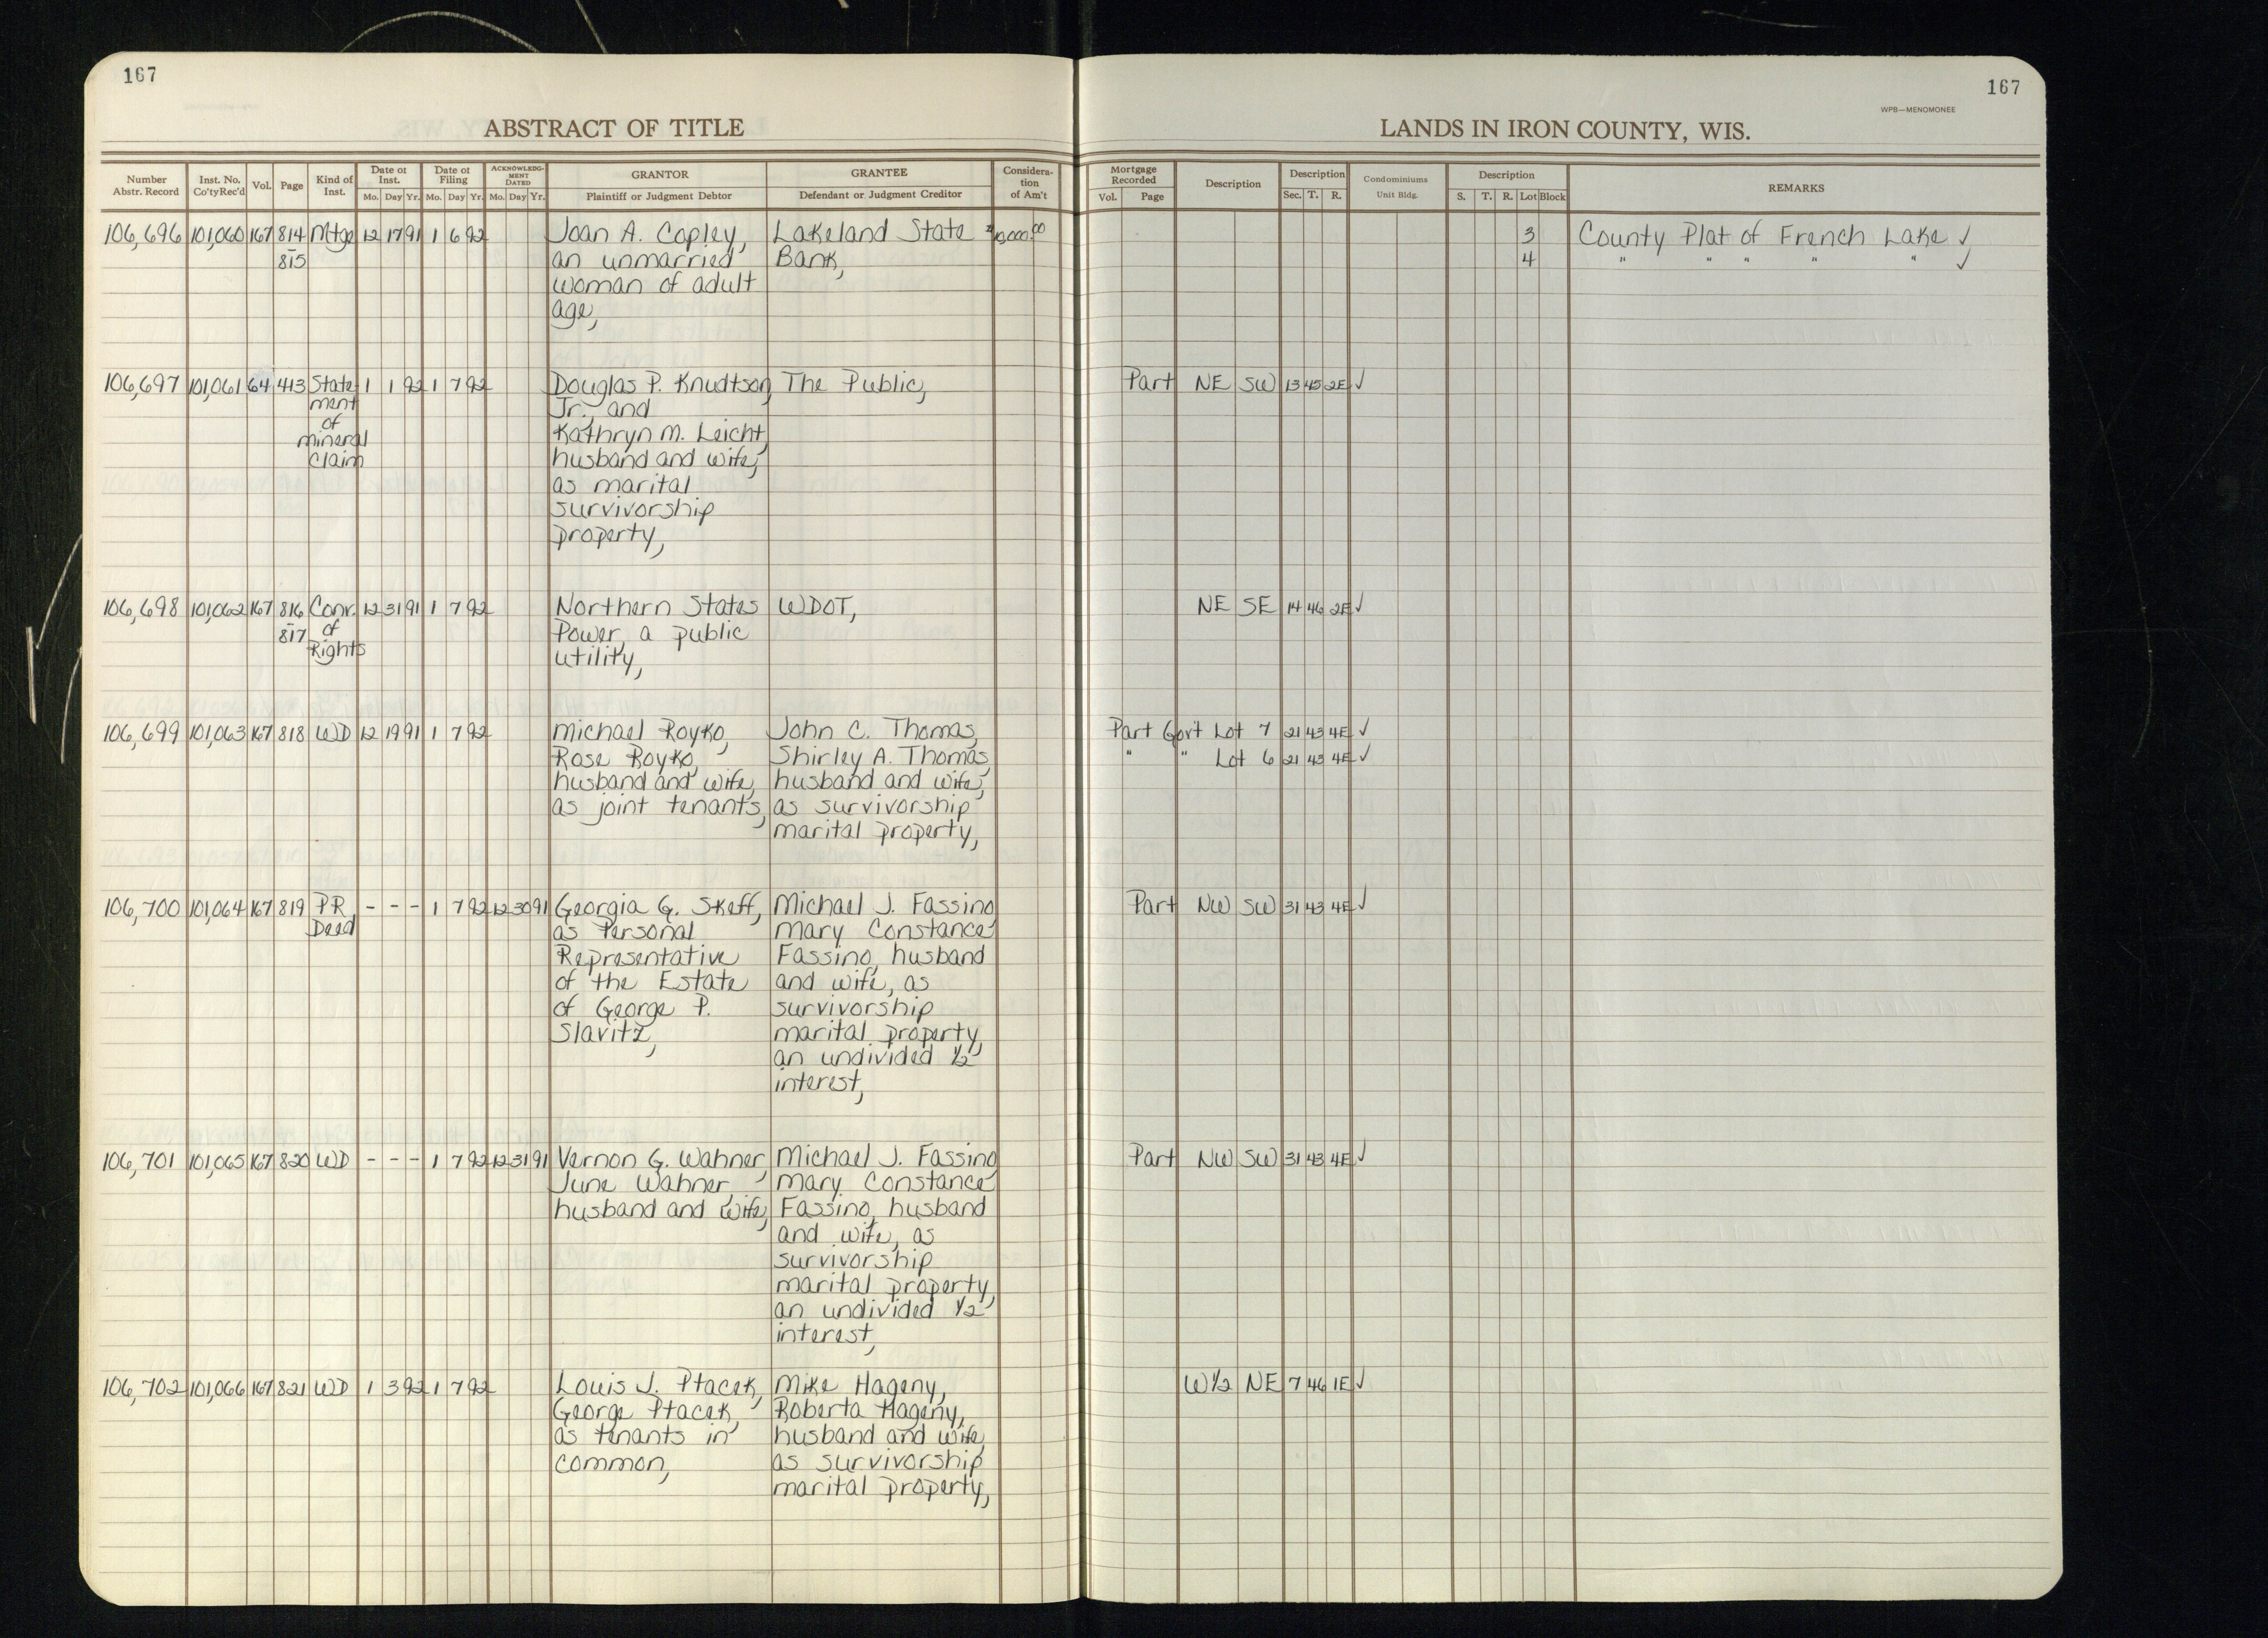 167
167
WPB—MENOMONEE
ABSTRACT OF TITLE
LANDS IN IRON COUNTY, WIS.
Number Abstr. Record | Inst. No. Co'ty Rec'd | Vol. | Page | Kind of Inst. | Date of Inst. Mo. Day Yr. | Date of Filing Mo. Day Yr. | ACKNOWLEDGMENT DATED Mo. Day Yr. | GRANTOR Plaintiff or Judgment Debtor | GRANTEE Defendant or Judgment Creditor | Consideration of Am't | Mortgage Recorded Vol. Page | Description | Description Sec. T. R. | Condominiums Unit Bldg. | Description S. T. R. Lot Block | REMARKS
106,696 101,060 167 814 Mtge 12 17 91 1 6 92 Joan A. Copley, Lakeland State 3 County Plat of French Lake ✓
- 815 an unmarried Bank, 4 " " " " " ✓
woman of adult
age,
106,697 101,061 64 413 State 1 1 92 1 7 92 Douglas P. Knudtson, The Public, Part NE SW 13 45 2E ✓
ment Jr., and
of Kathryn M. Leicht,
mineral husband and wife,
claim as marital
survivorship
property,
106,698 101,062 167 816 Conv. 12 31 91 1 7 92 Northern States WDOT, NE SE 14 46 2E ✓
- 817 of Power, a public
Rights utility,
106,699 101,063 167 818 WD 12 19 91 1 7 92 Michael Royko, John C. Thomas, Part Gov't Lot 7 21 43 4E ✓
Rose Royko, Shirley A. Thomas, " " Lot 6 21 43 4E ✓
husband and wife, husband and wife,
as joint tenants, as survivorship
marital property,
106,700 101,064 167 819 PR - - - 1 7 92 12 30 91 Georgia G. Skeff, Michael J. Fassino, Part NW SW 31 43 4E ✓
Deed as Personal Mary Constance
Representative Fassino, husband
of the Estate and wife, as
of George P. survivorship
Slavitz, marital property,
an undivided 1/2
interest,
106,701 101,065 167 820 WD - - - 1 7 92 12 31 91 Vernon G. Wahner, Michael J. Fassino, Part NW SW 31 43 4E ✓
June Wahner, Mary Constance
husband and wife, Fassino, husband
and wife, as
survivorship
marital property,
an undivided 1/2
interest,
106,702 101,066 167 821 WD 1 3 92 1 7 92 Louis J. Ptacek, Mike Hageny, W1/2 NE 7 46 1E ✓
George Ptacek, Roberta Hageny,
as tenants in husband and wife,
common, as survivorship
marital property,